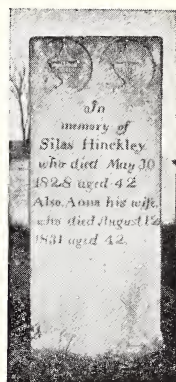 In
memory of
Silas Hinckley
who died May 30
1828 aged 42
Also, Anna his wife.
who died August 12
1831 aged 42.